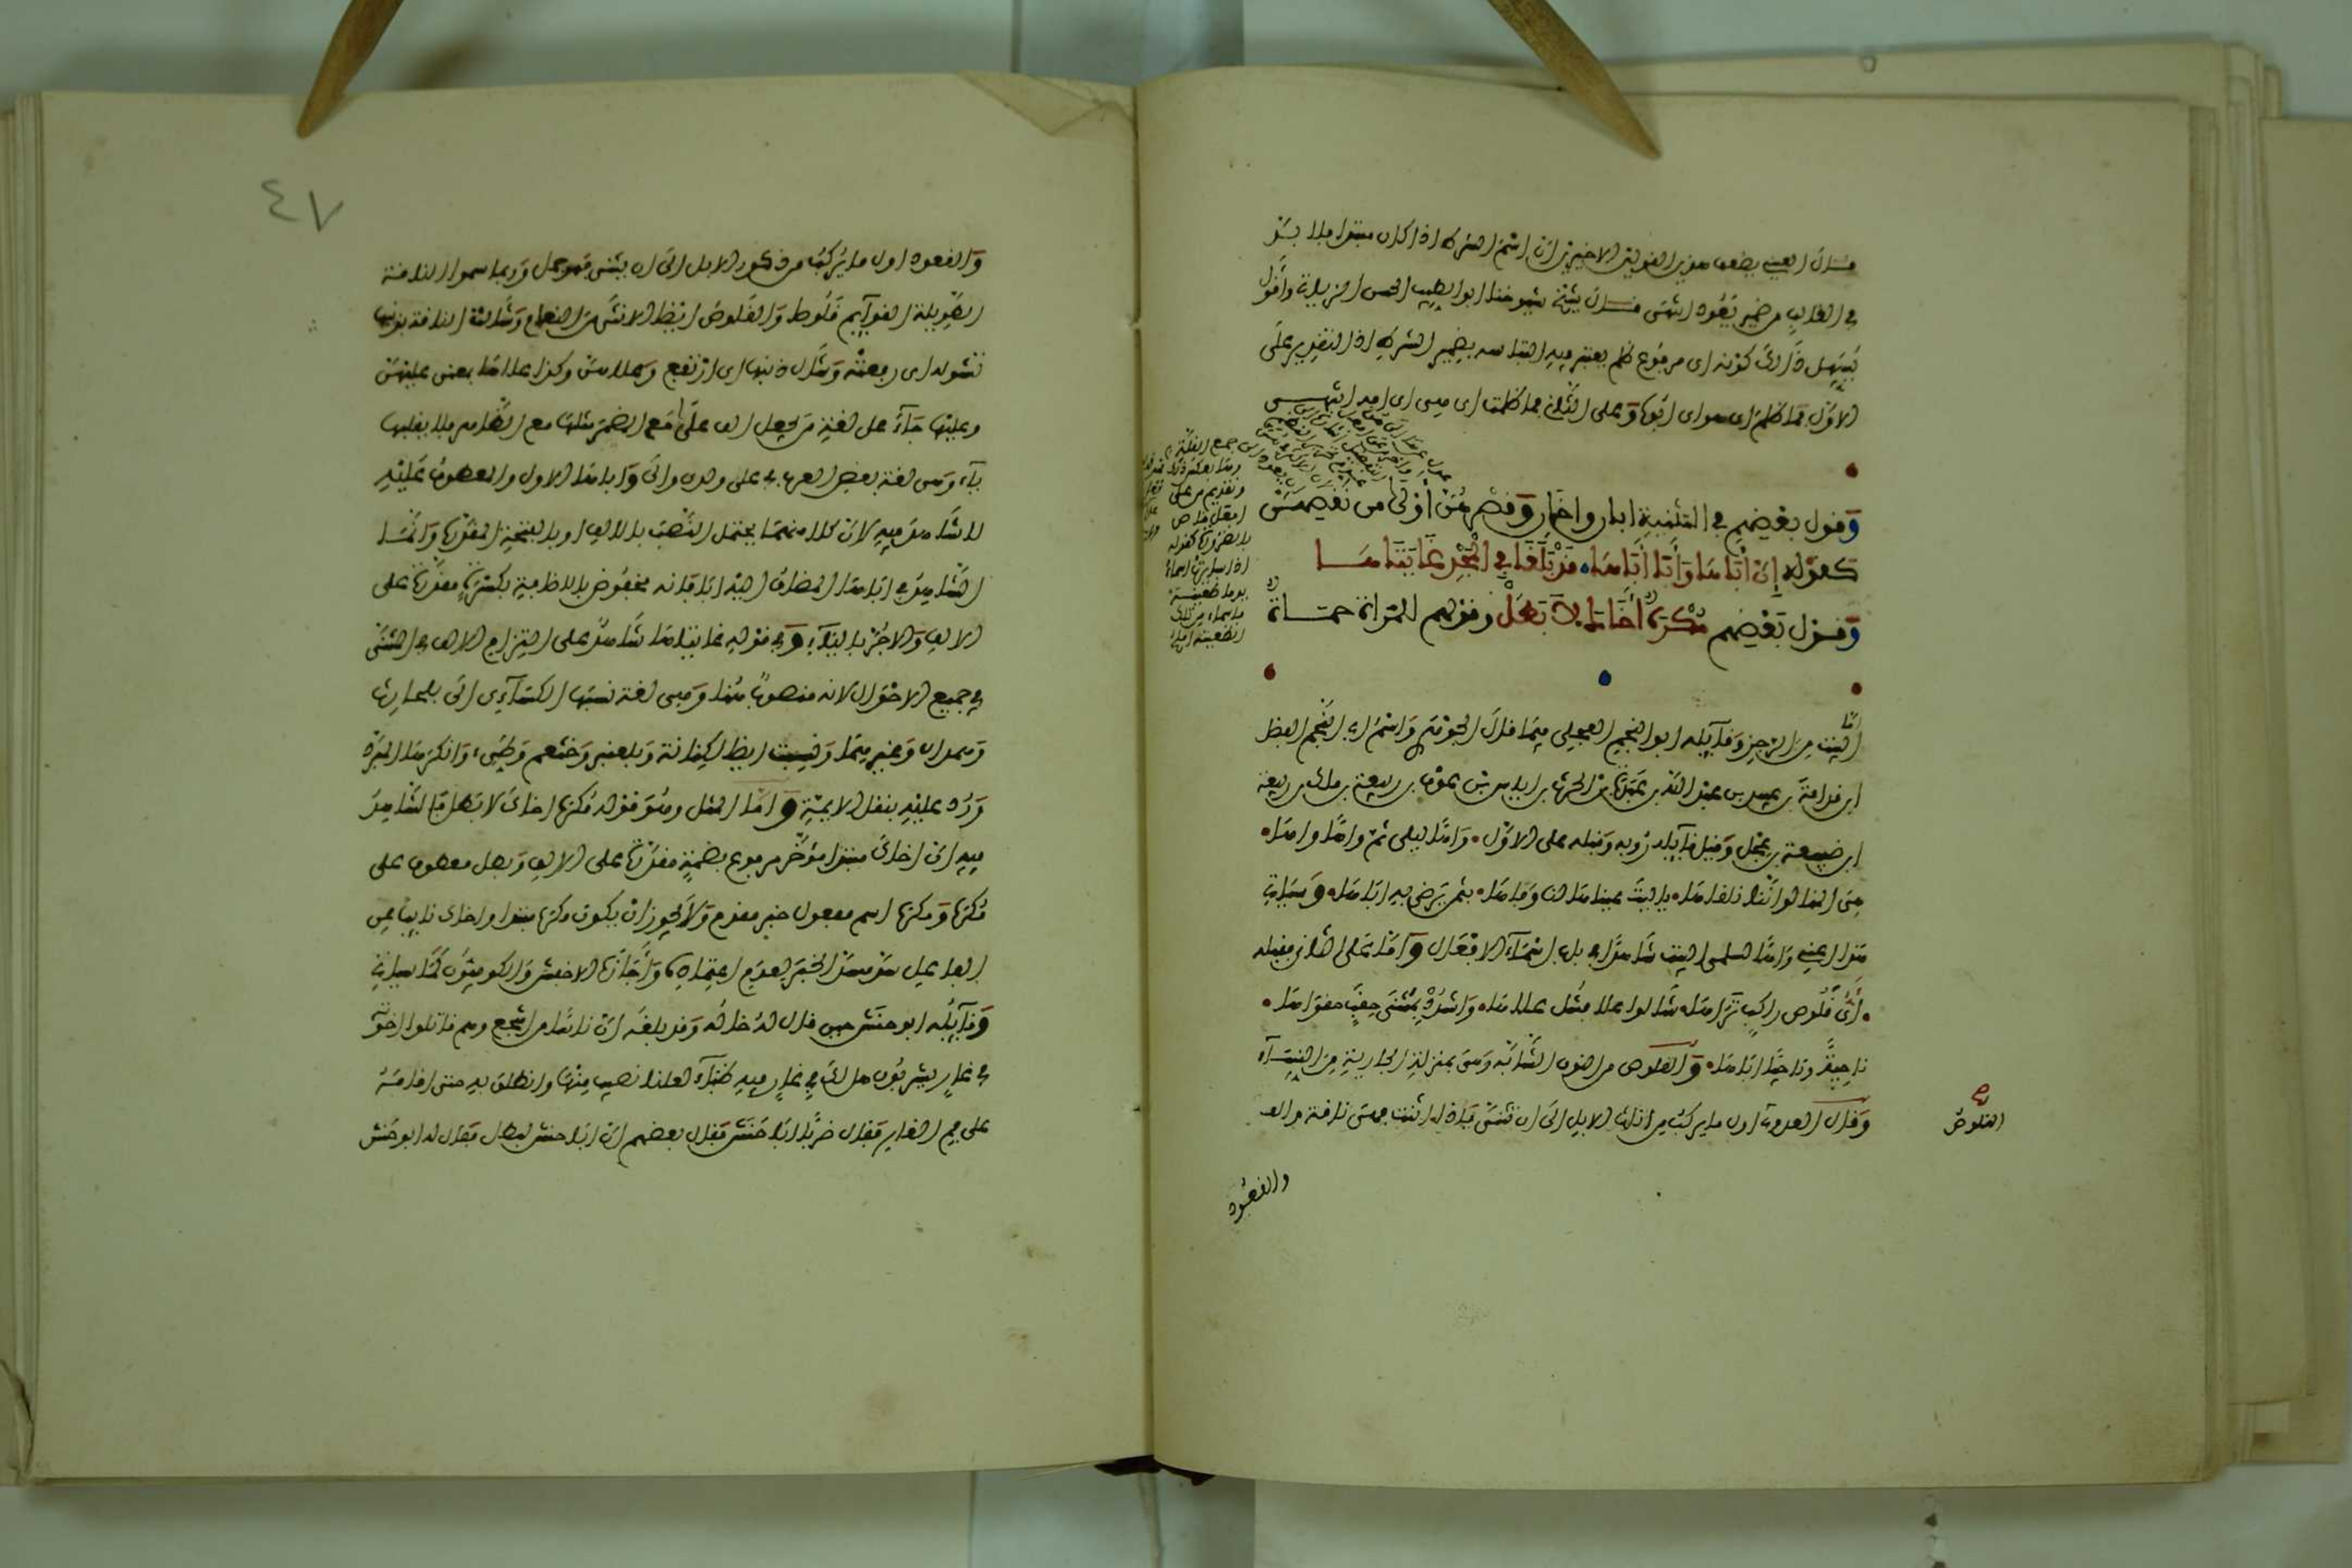 قال العيني يضعف هذين القولين الاخيرين ان اسم الشرط اذا كان مبتدا فلا بد
في الغالب من ضمير يعود انتهى قال شيخ شيوخنا ابو الطيب الحسن الزياتي واقول
يسهل ذلك كونه اي مرفوع ظلم يعتبر فيه التباسه بضمير الشرط اذ التقدير على
الاول فما ظلم اي هو اي ابوها وعلى الثاني فما ظلمت اي هي اي امه انتهى
وقول بعضهم في التثنية ابان واخان وقصرهن اولى من نقصهن
كقوله ان اباها وابا اباها قد بلغا في المجد غايتاها
وقول بعضهم مكره اخاك لا بطل وقولهم للمراة حماة
اما
البيت من الرجز وقايله ابو النجم العجلي فيما قال الجوهري واسم ابي النجم الفضل
ابن قدامة بن عبيد بن عبد الله بن عبدة بن الحرث بن اياس بن عوف بن ربيعة بن مالك بن ربيعة
ابن ضبيعة بن عجل وقيل قايله روبة وقبله على الاول واها لليلى ثم واها واها
هي المنا لو اننا نلناها يا ليت عيناها لنا وفاها بثمن يرضى به اباها وسياتي
هذا العيني واها لسلمى البيت شاهدا في باب اسماء الافعال واما على الثاني فقبله
اي قلوص راكب تراها شالوا علا فشل علاها واشدد بمثنى حقب حقواها
ناجية وناجيا اباها والقلوص من النوق الشابة وهي بمنزلة الجارية من النساء
وقال العدوي اول ما يركب من اناث الابل الى ان تثنى فاذا اثنت فهي ناقة والقـ
القلوص
والقعود
٤٧
والقعود اول ما يركب من ذكور الابل الى ان يثني فهو جمل وربما سموا الناقة
الطويلة القوايم قلوصا والقلوص ايضا الانثى من النعام وشالت الناقة بذنبها
تشوله اي رفعته وشال ذنبها اي ارتفع وعلاهن وكذا علاها بمعنى عليهن
وعليها جاء على لغة من يجعل الف على مع المضمر مثلها مع الظاهر فلا يقلبها
ياء وهي لغة بعض العرب في على ولدى والى واباها الاول والمعطوف عليه
لا شاهد فيه لان كلا منهما يحتمل النصب بالالف او بالفتحة المقدرة وانما
الشاهد في اباها المضاف اليه ابا فانه مخفوض بالاضافة بكسرة مقدرة على
الالف والا لجر بالياء وفي قوله غايتاها شاهد على التزام الالف في المثنى
في جميع الاحوال لانه منصوب هنا وهي لغة نسبها الكسائي الى بلحارث
وهمدان وغيرهما ونسبت ايضا لكنانة وبلعنبر وخثعم وطيء وانكرها المبرد
ورد عليه بنقل الايمة واما المثل وهو قوله مكره اخاك لا بطل فالشاهد
فيه ان اخاك مبتدا مؤخر مرفوع بضمة مقدرة على الالف وبطل معطوف على
مكره ومكره اسم مفعول خبر مقدم ولا يجوز ان يكون مكره مبتدا واخاك نايبا عن
الفاعل سد مسد الخبر لعدم اعتماده واجازه الاخفش والكوفيون كما سياتي
وقايله ابو حنش حين قال له خاله وقد بلغه ان ناسا من اشجع وهم قاتلوا اخوته
في غار يشربون هل لك في غار فيه ظباء لعلنا نصيب منها وانطلق به حتى اقامه
على فم الغار فقال ضربا ابا حنش فقال بعضهم ان ابا حنش لبطل فقال له ابو حنش